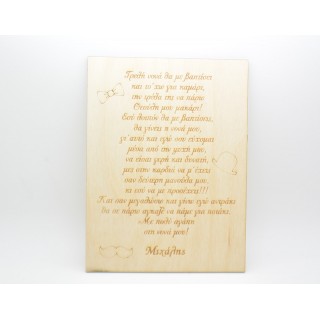 Τρελή νονά θα με βαπτίσει
και το 'χω για καμάρι,
την τρέλα της να πάρω
Θεούλη μου μακάρι!
Εσύ λοιπόν θα με βαπτίσεις,
θα γίνεις η νονά μου,
γι' αυτό και εγώ σου εύχομαι
μέσα από την ψυχή μου,
να είσαι γερή και δυνατή,
μες στην καρδιά να μ' έχεις
σαν δεύτερη μανούλα μου,
κι εσύ να με προσέχεις!!!
Και σαν μεγαλώσω και γίνω εγώ αντράκι
θα σε πάρω αγκαζέ να πάμε για ποτάκι
Με πολύ αγάπη
στη νονά μου!
Μιχάλης